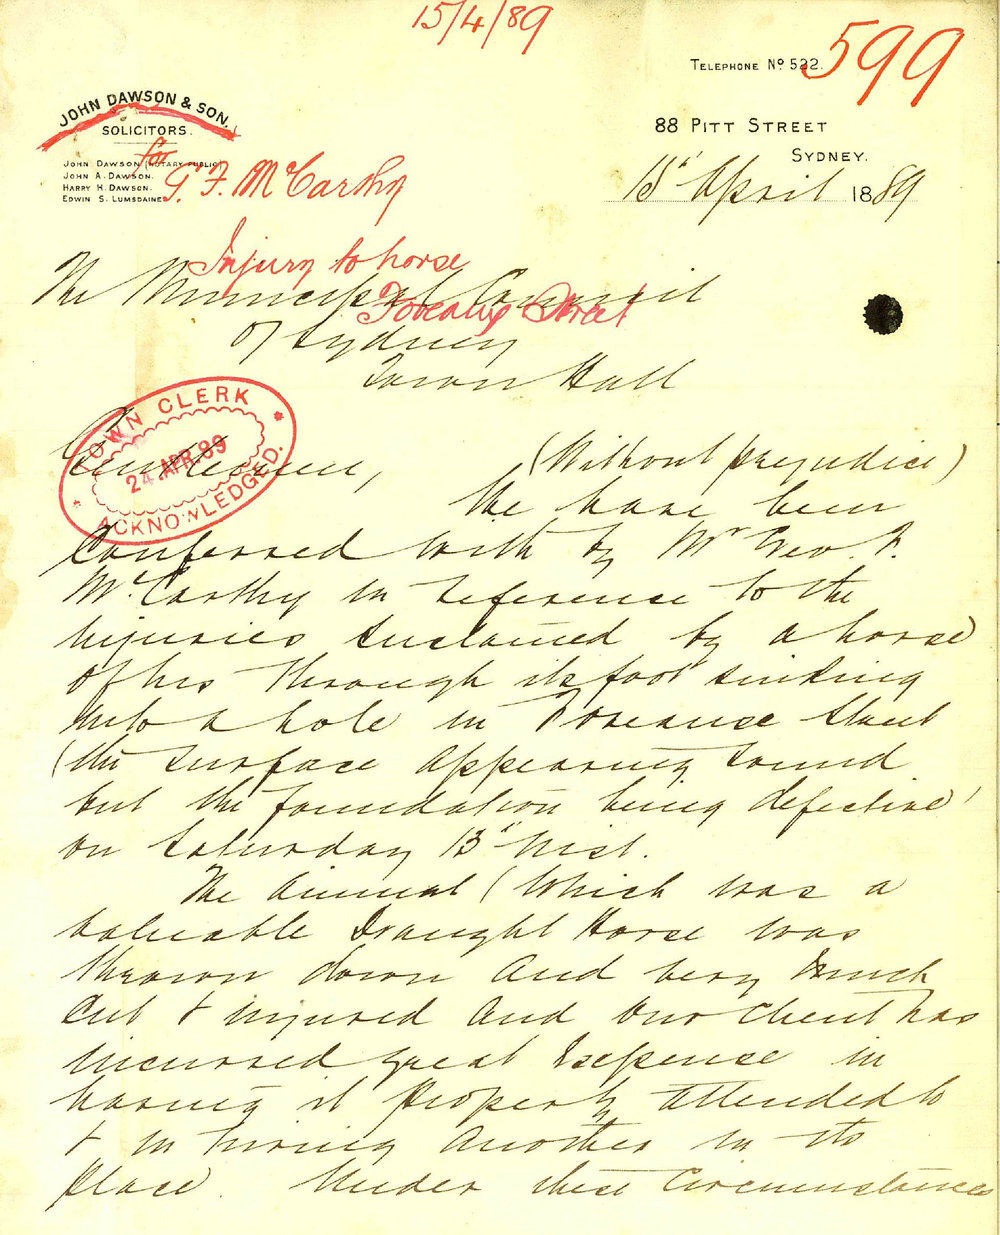 15/4/89
599
TELEPHONE No 522.
JOHN DAWSON & SON.
SOLICITORS.
JOHN DAWSON (NOTARY PUBLIC)
JOHN A. DAWSON.
HARRY H. DAWSON.
EDWIN S. LUMSDAINE
88 PITT STREET
SYDNEY.
15" April 1889
for
G. F. McCarthy
Injury to horse
Street
The Municipal Council
of Sydney
Town Hall
TOWN CLERK
24 APR. 89
ACKNOWLEDGED.
Gentlemen,
(Without prejudice)
We have been
Conferred with by Mr Geo. F.
McCarthy in reference to the
injuries sustained by a horse
of his through its foot sinking
into a hole in Street
(the surface appearing sound
but the foundation being defective)
on Saturday 13" inst.
The animal (which was a
valuable Draught Horse was
thrown down and very much
Cut & injured and our Client has
incurred great Expense in
having it properly attended to
& in hiring another in its
place. Under these Circumstances